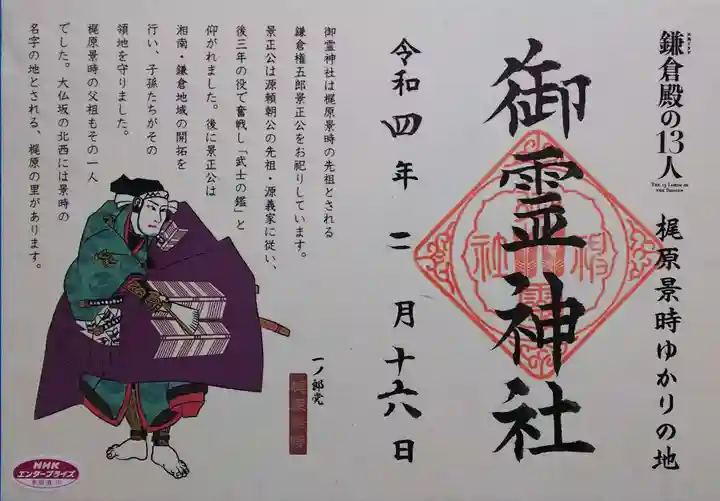 鎌倉殿の13人
THE 13 LORDS OF
THE SHOGUN
梶原景時ゆかりの地
御霊神社
令和四年二月十六日
御霊神社は梶原景時の先祖とされる
鎌倉権五郎景正公をお祀りしています。
景正公は源頼朝公の先祖・源義家に従い、
後三年の役で奮戦し「武士の鑑」と
仰がれました。後に景正公は
湘南・鎌倉地域の開拓を
行い、子孫たちがその
領地を守りました。
梶原景時の父祖もその一人
でした。大仏坂の北西には景時の
名字の地とされる、梶原の里があります。
一ノ郎党
梶原景時
NHK
エンタープライズ